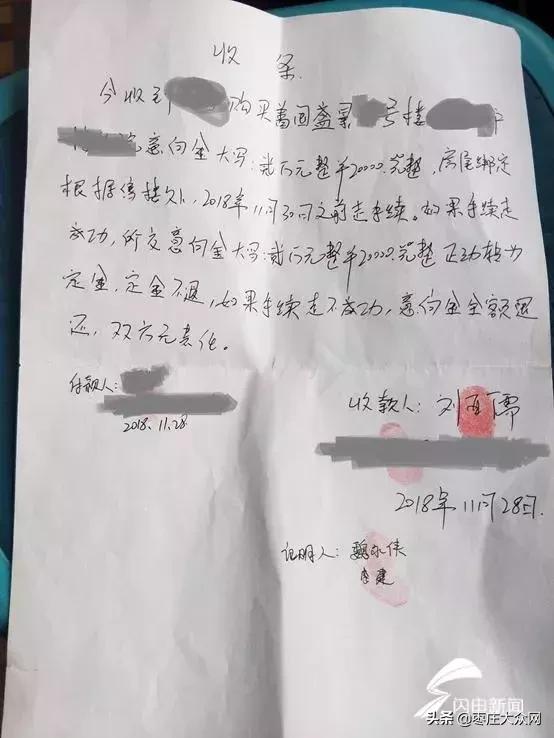 收条
今收到 购买善园盏景 号楼
意向金大写:贰万元整￥20000.元整,房屋绑定
根据 2018年11月30日之前走手续。如果手续走
成功,所交意向金大写:贰万元整￥20000.元整 正动转为
定金,定金不退,如果手续走不成功,意向金全额退
还,双方无责任。
付款人:
2018.11.28
收款人:刘
2018年11月28日.
证明人:魏永侠
李建
闪电新闻
头条 @枣庄大众网